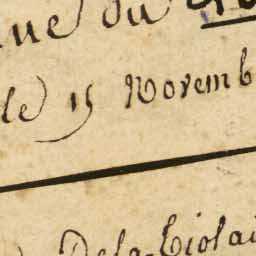 ue du
le 15 Novemb
Dela-Tiolai